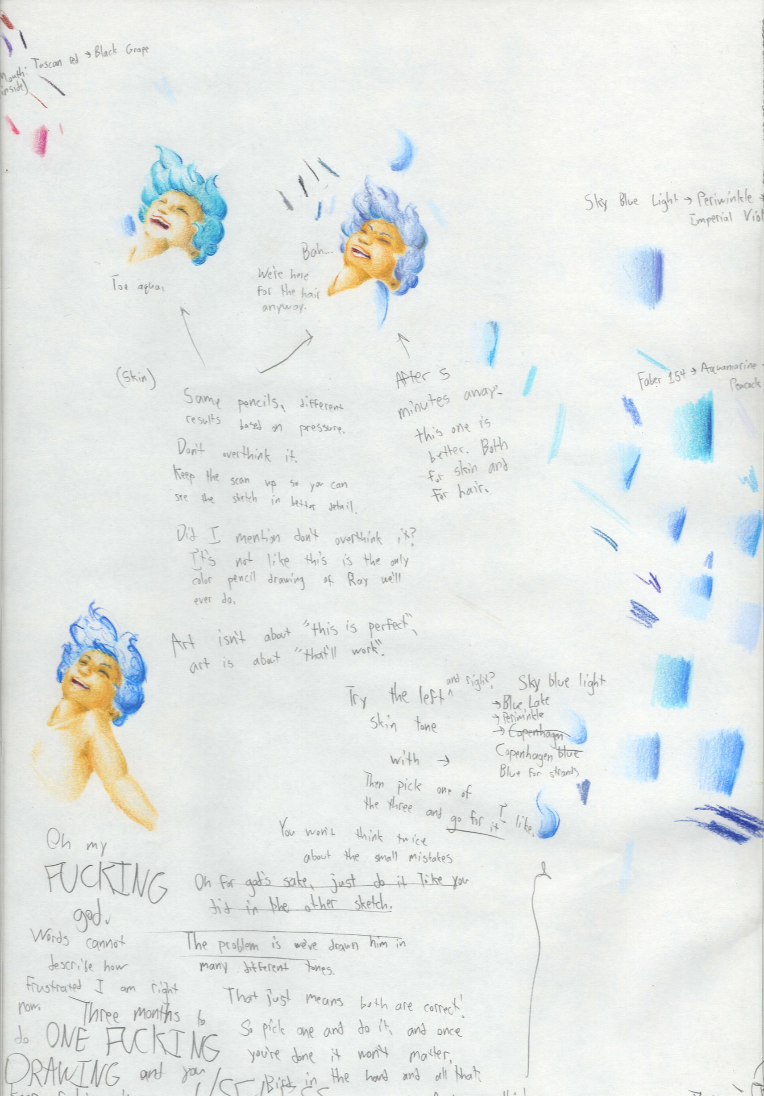 Mouth: Tuscan red → Black Grape
inside)
Sky Blue Light → Periwinkle →
Imperial Viol
Too aqua.
Bah...
We're here
for the hair
anyway.
Faber 154 → Aquamarine →
Peacock
(Skin)
Same pencils, different
results based on pressure.
Don't overthink it.
Keep the scan up so you can
see the sketch in better detail.
After 5
minutes away:
this one is
better. Both
for skin and
for hair.
Did I mention don't overthink it?
It's not like this is the only
color pencil drawing of Ray we'll
ever do.
Art isn't about "this is perfect",
art is about "that'll work".
Try the left ^ and right?
skin tone
with →
Sky blue light
→ Blue Lake
→ Periwinkle
→ Copenhagen
Copenhagen blue
Blue for strands
Then pick one of
the three and go for it I like.
You won't think twice
about the small mistakes
Oh for god's sake, just do it like you
did in the other sketch.
The problem is we've drawn him in
many different tones.
That just means both are correct!
So pick one and do it, and once
you're done it won't matter.
Bird in the hand and all that.
Oh my
FUCKING
god.
Words cannot
describe how
frustrated I am right
now. Three months to
do ONE FUCKING
DRAWING and you